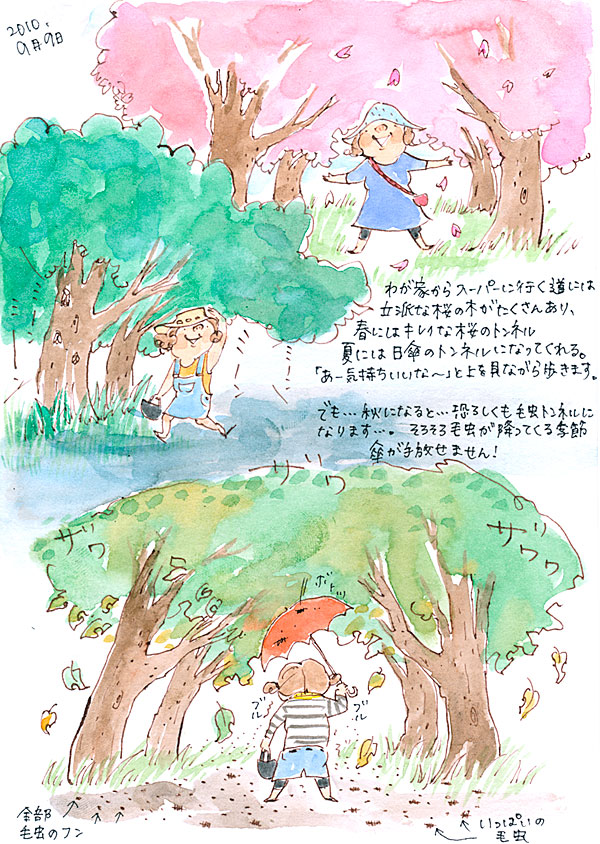 2010.
9月9日
わが家からスーパーに行く道には
立派な桜の木がたくさんあり、
春にはキレイな桜のトンネル
夏には日傘のトンネルになってくれる。
「あー気持ちいいな〜」と上を見ながら歩きます。
でも…秋になると…恐ろしくも毛虫トンネルに
なります…。そろそろ毛虫が降ってくる季節
傘が手放せません！
ザワ
ザワワ
ザワワ
ボトッ
ブル
ブル
全部
毛虫のフン
いっぱいの
毛虫